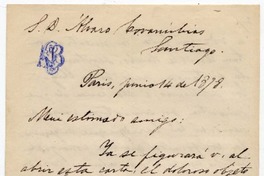 S. D. Álvaro Covarrúbias
Santiago.
AB
Paris, junio 14 de 1878.
Mui estimado amigo:
Ya se figurará v. al
abrir esta carta el doloroso objeto